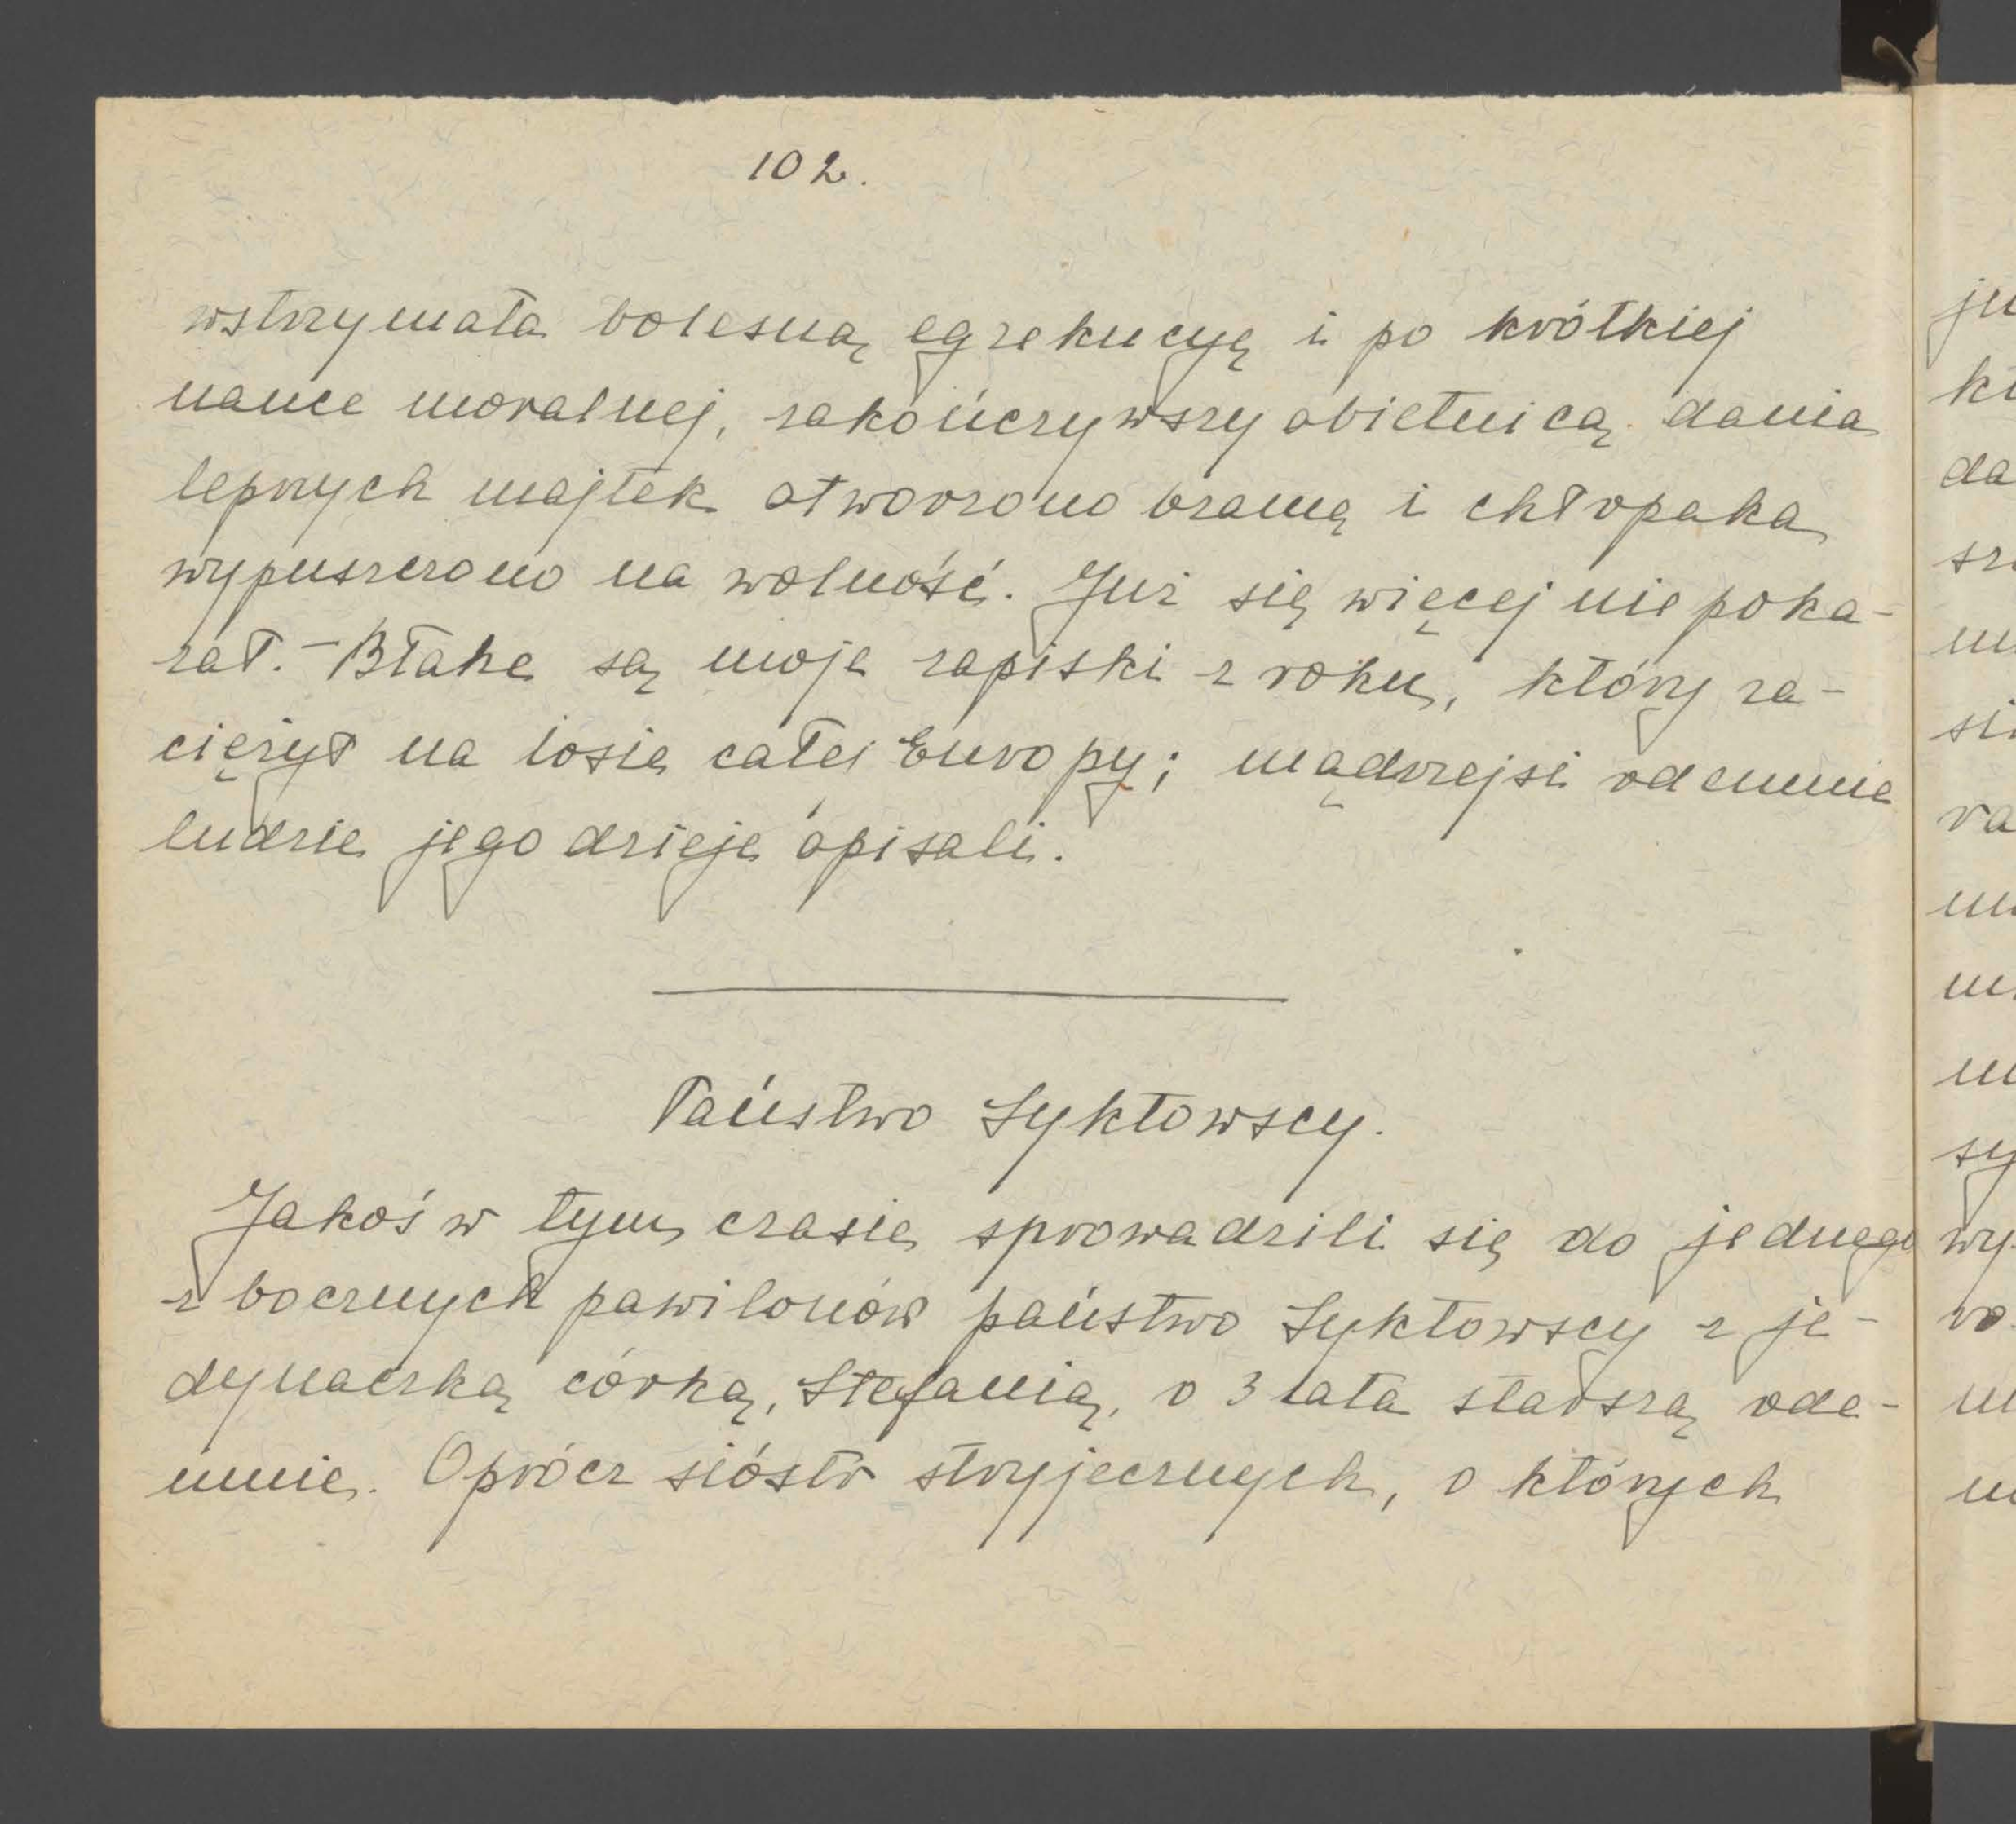 102.
wstrzymała bolesną egzekucyę i po krótkiej
nauce moralnej, zakończywszy obietnicą dania
lepszych majtek otworzono bramę i chłopaka
wypuszczono na wolność. Już się więcej nie poka-
zał. – Błahe są moje zapiski z roku, który za-
ciężył na losie całej Europy; mądrzejsi odemnie
ludzie jego dzieje opisali.
Państwo Syktowscy.
Jakoś w tym czasie sprowadzili się do jednego
z bocznych pawilonów państwo Syktowscy z je-
dynaczką córką, Stefanią, o 3 lata starszą ode-
mnie. Oprócz sióstr stryjecznych, o których